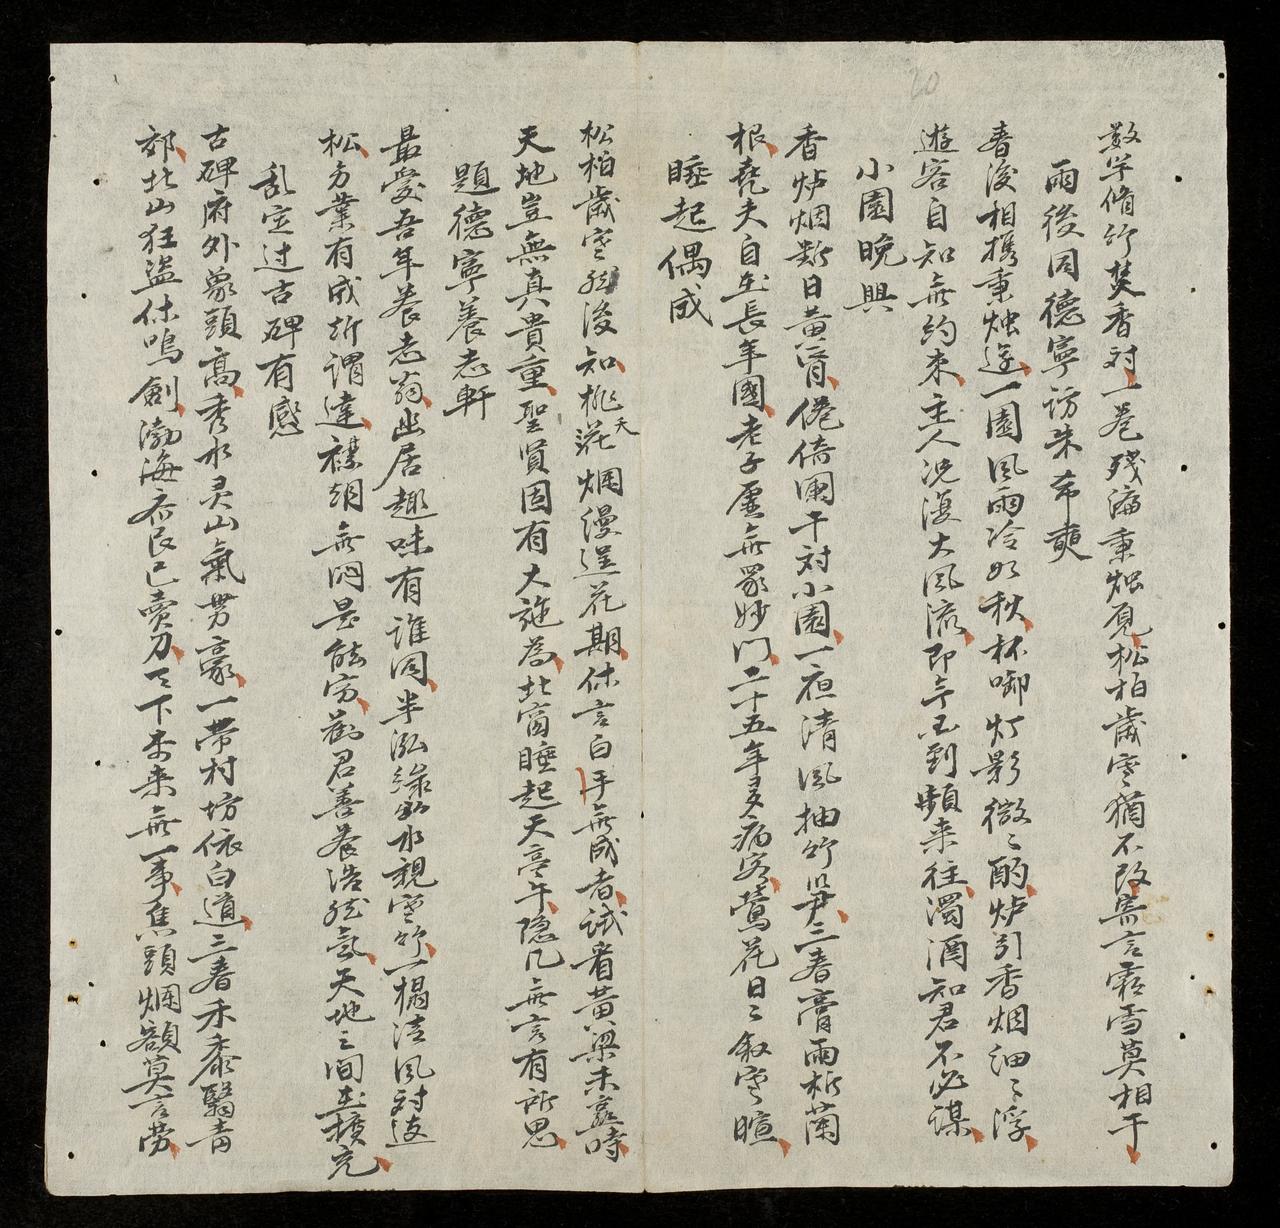 数竿脩竹焚香对一卷残编秉烛覌松柏歲寒猶不改寄言霜雪莫相干
雨後同德寧访朱希爽
春深相携秉烛遊一園风雨冷如秋杯啣灯影微〻酌炉引香烟细〻浮
遊客自知無约束主人况復大风流即今不到频来往濁酒知君不必谋
小園晚興
香炉烟断日黄昏倦倚阑干对小園一夜清风抽竹笋三春膏雨折蘭
根堯夫自在長年國老子虚無眾妙门二十五年多病客鶯花日〻叙寒暄
睡起偶成
松柏歲寒然後知桃夭烂漫逞花期休言白手無成者试看黄粱未熟時
天地豈無真貴重聖賢固有大施為北窗睡起天亭午隐几無言有所思
題德寧養志軒
最愛吾年養志翁幽居趣味有谁同半泓绿水親寒竹一榻清风对返
松多業有成斯谓達襟期無闷是能穷勸君善養浩然氣天地之间在擴充
乱定过古碑有感
古碑府外象頭高秀水灵山氣势豪一带村坊依白道三春禾黍翳青
郊北山狂盜休鳴劍渤海齐民已賣刀天下本来無一事焦頭烂額莫言劳